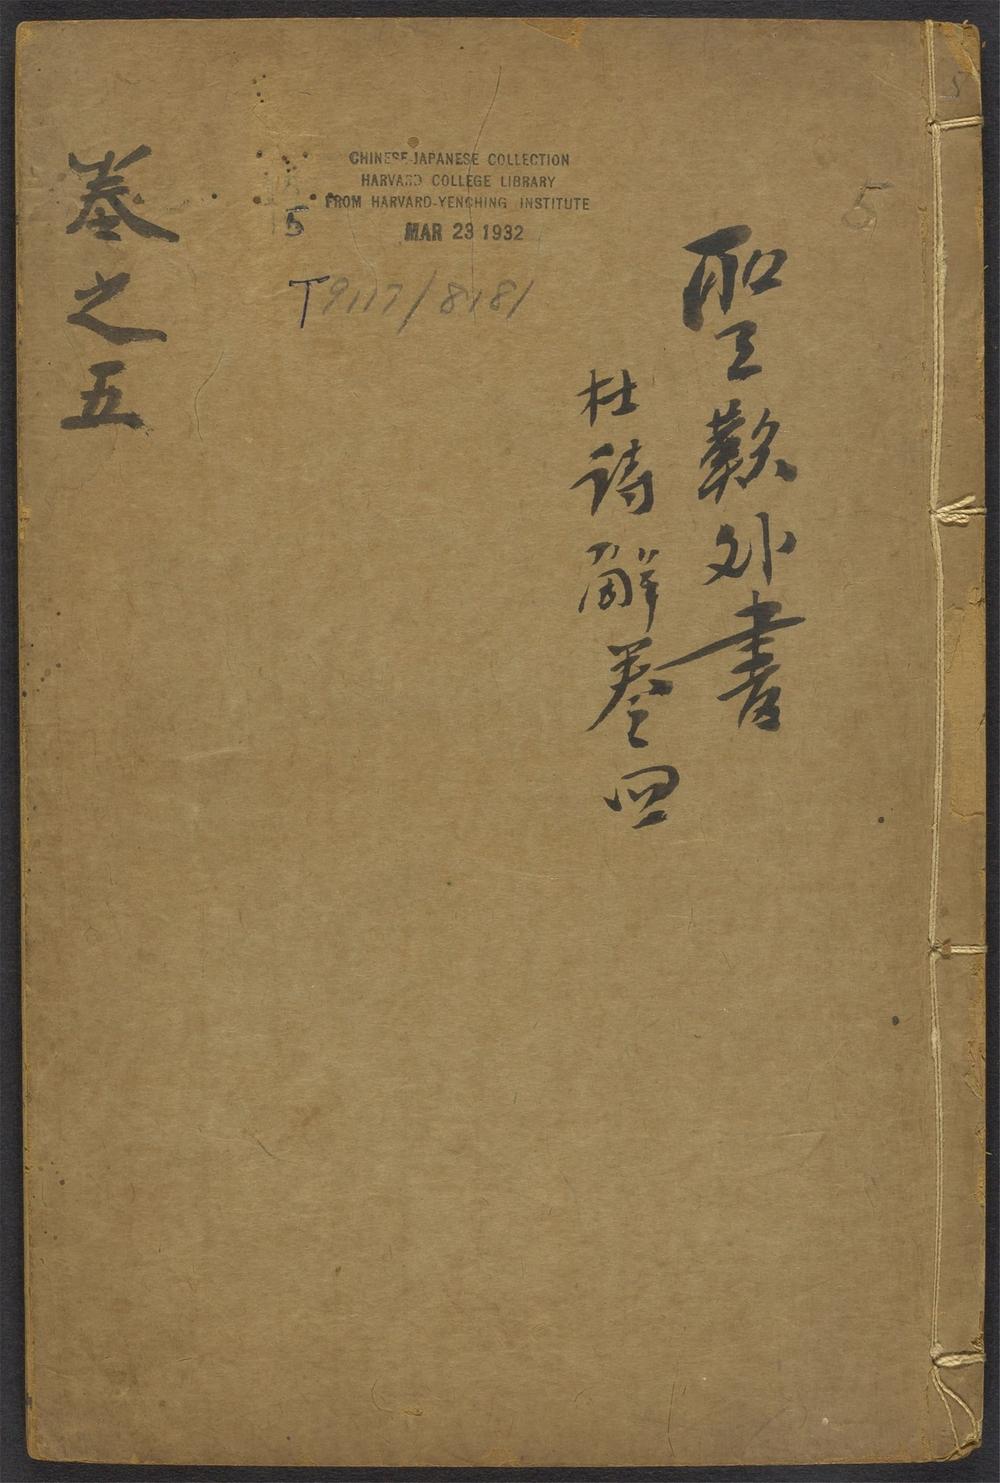 聖歎外書
杜詩解卷四
卷之五
CHINESE-JAPANESE COLLECTION
HARVARD COLLEGE LIBRARY
FROM HARVARD-YENCHING INSTITUTE
MAR 23 1932
5
T9117/8181
5
5